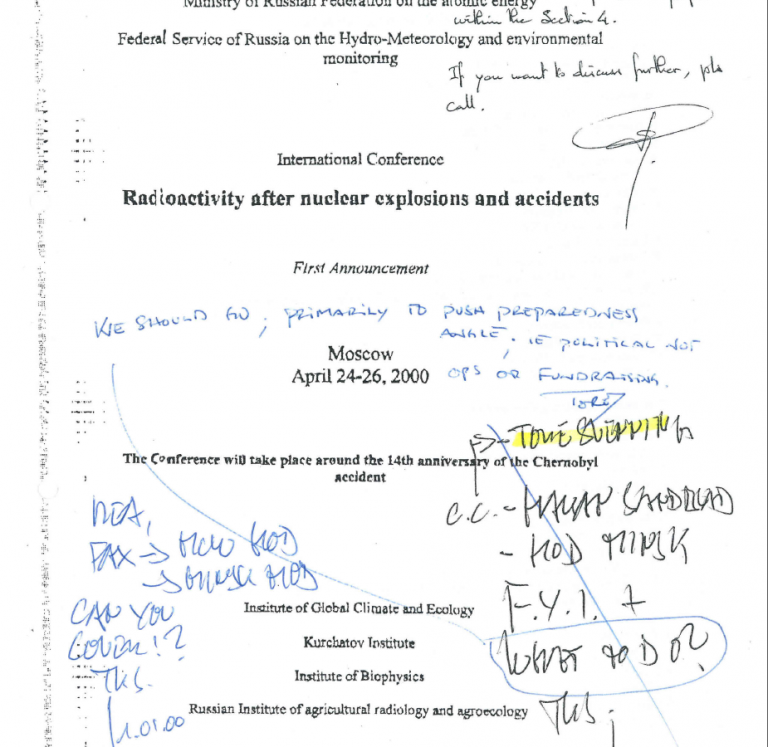 Ministry of Russian Federation on the atomic energy
within the Section 4.
Federal Service of Russia on the Hydro-Meteorology and environmental
monitoring
If you want to discuss further, pls
call.
International Conference
Radioactivity after nuclear explosions and accidents
First Announcement
WE SHOULD GO, PRIMARILY TO PUSH PREPAREDNESS
ANGLE, IE POLITICAL NOT
Moscow
April 24-26, 2000
OPS OR FUNDRAISING.
The Conference will take place around the 14th anniversary of the Chernobyl
accident
C.C. -
- HOD MINSK
FAX → HOD
→ MINSK HOD
F.Y.I. +
CAN YOU
COVER!?
TKS.
Institute of Global Climate and Ecology
Kurchatov Institute
WHAT TO DO?
Institute of Biophysics
Russian Institute of agricultural radiology and agroecology
TKS.
1.01.00